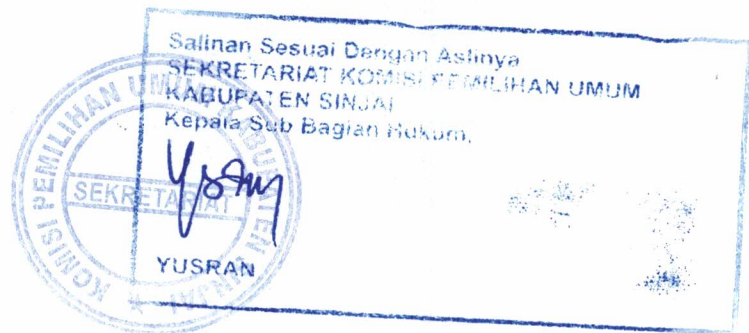 Salinan Sesuai Dengan Aslinya
SEKRETARIAT KOMISI PEMILIHAN UMUM
KABUPATEN SINJAI
Kepala Sub Bagian Hukum,
KOMISI PEMILIHAN UMUM KABUPATEN SINJAI
SEKRETARIAT
YUSRAN